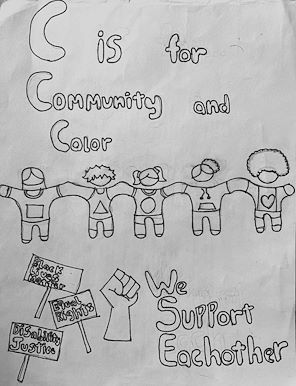 C is for
Community and
Color
Black
Lives
Matter
Equal
Rights
Disability
Justice
We
Support
Eachother